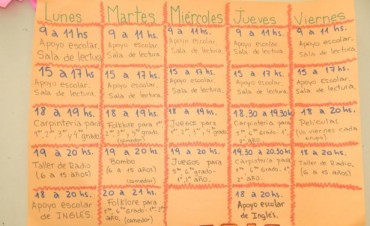 Lunes Martes Miércoles Jueves Viernes
9 a 11 hs
Apoyo escolar.
Sala de lectura
9 a 11 hs.
Apoyo escolar.
Sala de lectura.
9 a 11 hs.
Apoyo escolar.
Sala de lectura.
9 a 11 hs.
Apoyo escolar.
Sala de lectura.
9 a 11 hs.
Apoyo escolar.
Sala de lectura.
15 a 17 hs.
Apoyo escolar.
Sala de lectura.
15 a 17 hs.
Apoyo escolar.
Sala de lectura.
15 a 17 hs.
Apoyo escolar.
Sala de lectura.
15 a 17 hs.
Apoyo escolar.
Sala de lectura.
15 a 17 hs.
Apoyo escolar.
Sala de lectura.
18 a 19 hs.
Carpintería para
1º, 2º, 3º y 4º grado
18 a 19 hs.
Folklore para
grado.
(comedor)
18 a 19 hs.
Juegos para
1º, 2º, 3º y 4º grado
18.30 a 19.30 hs
Carpintería para
18 a 20 hs.
Películas
(un viernes cada
19 a 20 hs.
Taller de Radio
(6 a 15 años)
19 a 20 hs.
Bombo
(6 a 15 años)
(comedor)
19 a 20 hs.
Juegos para
5º, 6º grado-
1º, 2º año.
19.30 a 20.30 hs
Carpintería para
5º, 6º grado-1º,
2º año.
18 a 20 hs.
Taller de Radio
(6 a 15 años)
18 a 20 hs.
Apoyo escolar
de INGLÉS.
20 a 21 hs.
Folklore para
(comedor)
18 a 20 hs.
Apoyo escolar
de Inglés.